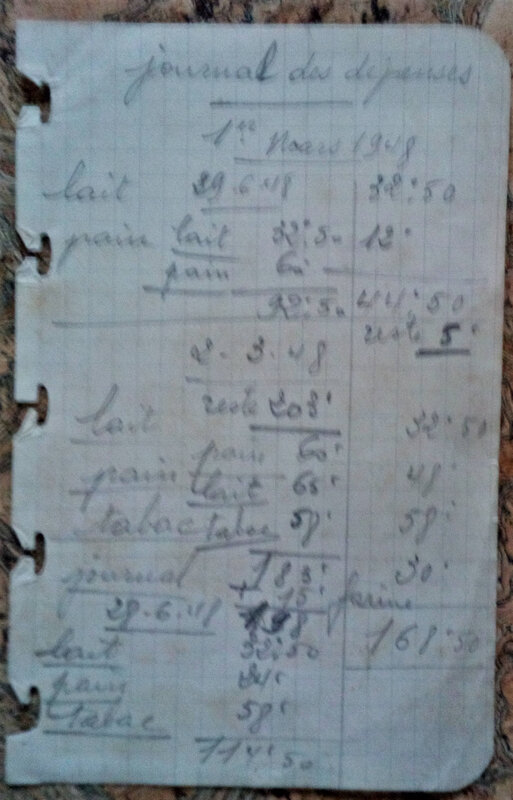 journal des depenses
1er Mars 1948
lait 29.6.48 32:50
pain lait 32:50 12:
pain 60:
92:50 44:50
reste 5:
2-3-48
lait reste 208: 32:50
pain pain 60: 48:
lait 65:
tabac tabac 58: 58:
journal 183: 30:
+ 15: farine
29-6-48 198
168:50
lait 32:50
pain 24:
tabac 58:
114:50